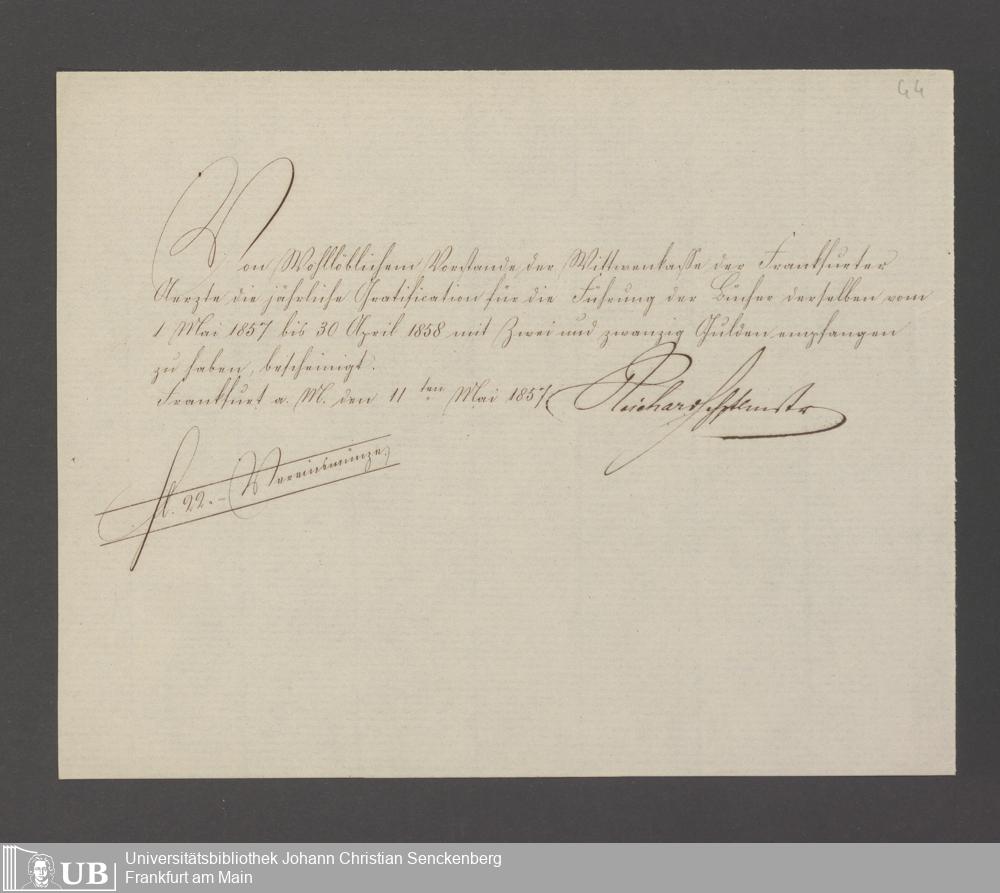 44
Von Wohllöblichem Vorstande der Wittwenkasse der Frankfurter
Aerzte die jährliche Gratification für die Führung der Bücher derselben vom
1 Mai 1857 bis 30 April 1858 mit Zwei und zwanzig Gulden empfangen
zu haben, bescheinigt.
Frankfurt a. M. den 11ten Mai 1857.
fl. 22.– Vereinsmünze.
UB
Universitätsbibliothek Johann Christian Senckenberg
Frankfurt am Main